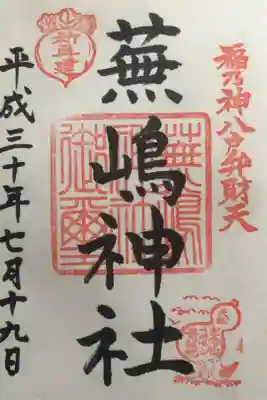 福乃神八戸弁財天
蕪嶋神社
蕪嶋
神社
御璽
平成三十年七月十九日